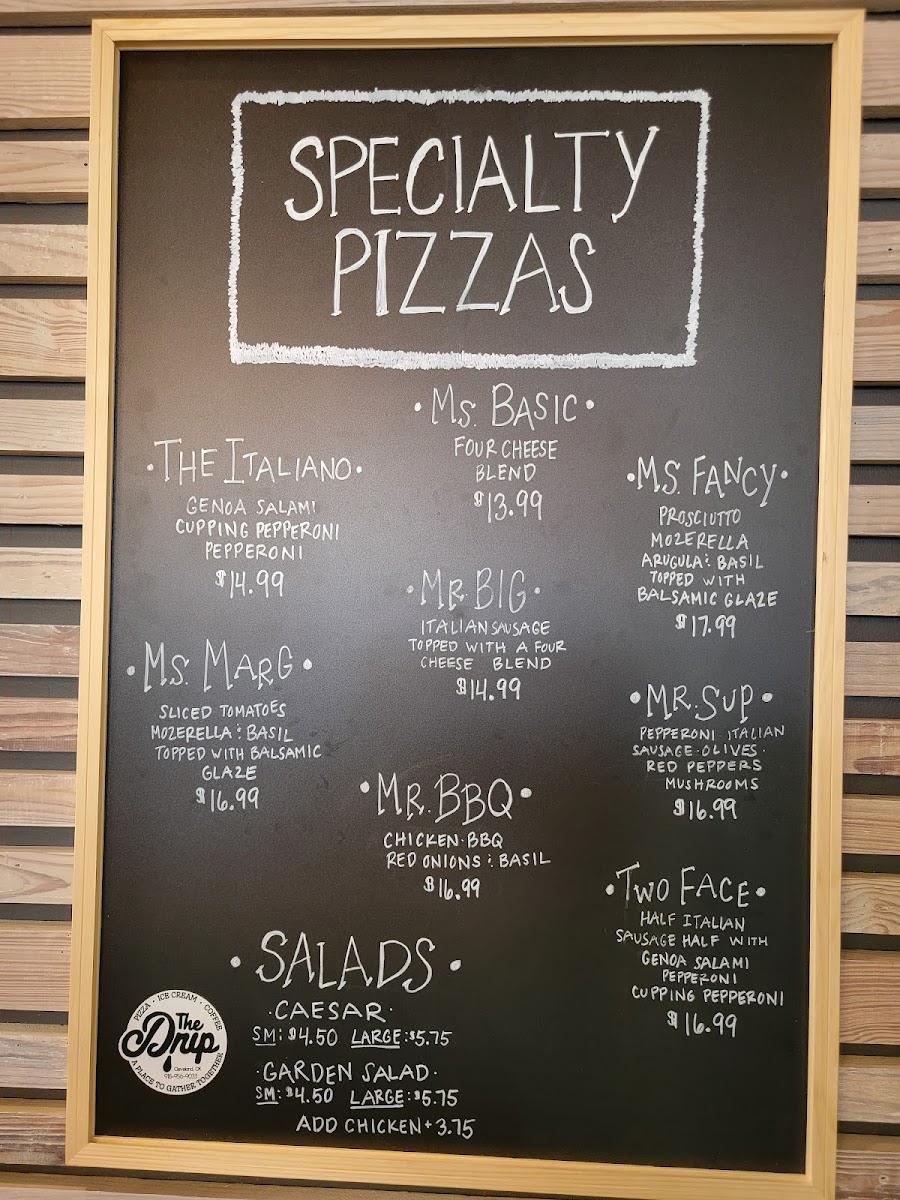 SPECIALTY
PIZZAS
· MS. BASIC ·
FOUR CHEESE
BLEND
$13.99
· THE ITALIANO ·
GENOA SALAMI
CUPPING PEPPERONI
PEPPERONI
$14.99
· MS. FANCY ·
PROSCIUTTO
MOZERELLA
ARUGULA : BASIL
TOPPED WITH
BALSAMIC GLAZE
$17.99
· MR BIG ·
ITALIAN SAUSAGE
TOPPED WITH A FOUR
CHEESE BLEND
$14.99
· MS. MARG ·
SLICED TOMATOES
MOZERELLA : BASIL
TOPPED WITH BALSAMIC
GLAZE
$16.99
· MR. SUP ·
PEPPERONI · ITALIAN
SAUSAGE · OLIVES ·
RED PEPPERS
MUSHROOMS
$16.99
· MR. BBQ ·
CHICKEN · BBQ
RED ONIONS : BASIL
$16.99
· TWO FACE ·
HALF ITALIAN
SAUSAGE HALF WITH
GENOA SALAMI
PEPPERONI
CUPPING PEPPERONI
$16.99
· SALADS ·
· CAESAR ·
SM: $4.50 LARGE: $5.75
· GARDEN SALAD ·
SM: $4.50 LARGE: $5.75
ADD CHICKEN + 3.75
PIZZA · ICE CREAM · COFFEE
The
Drip
Cleveland, OK
A PLACE TO GATHER TOGETHER